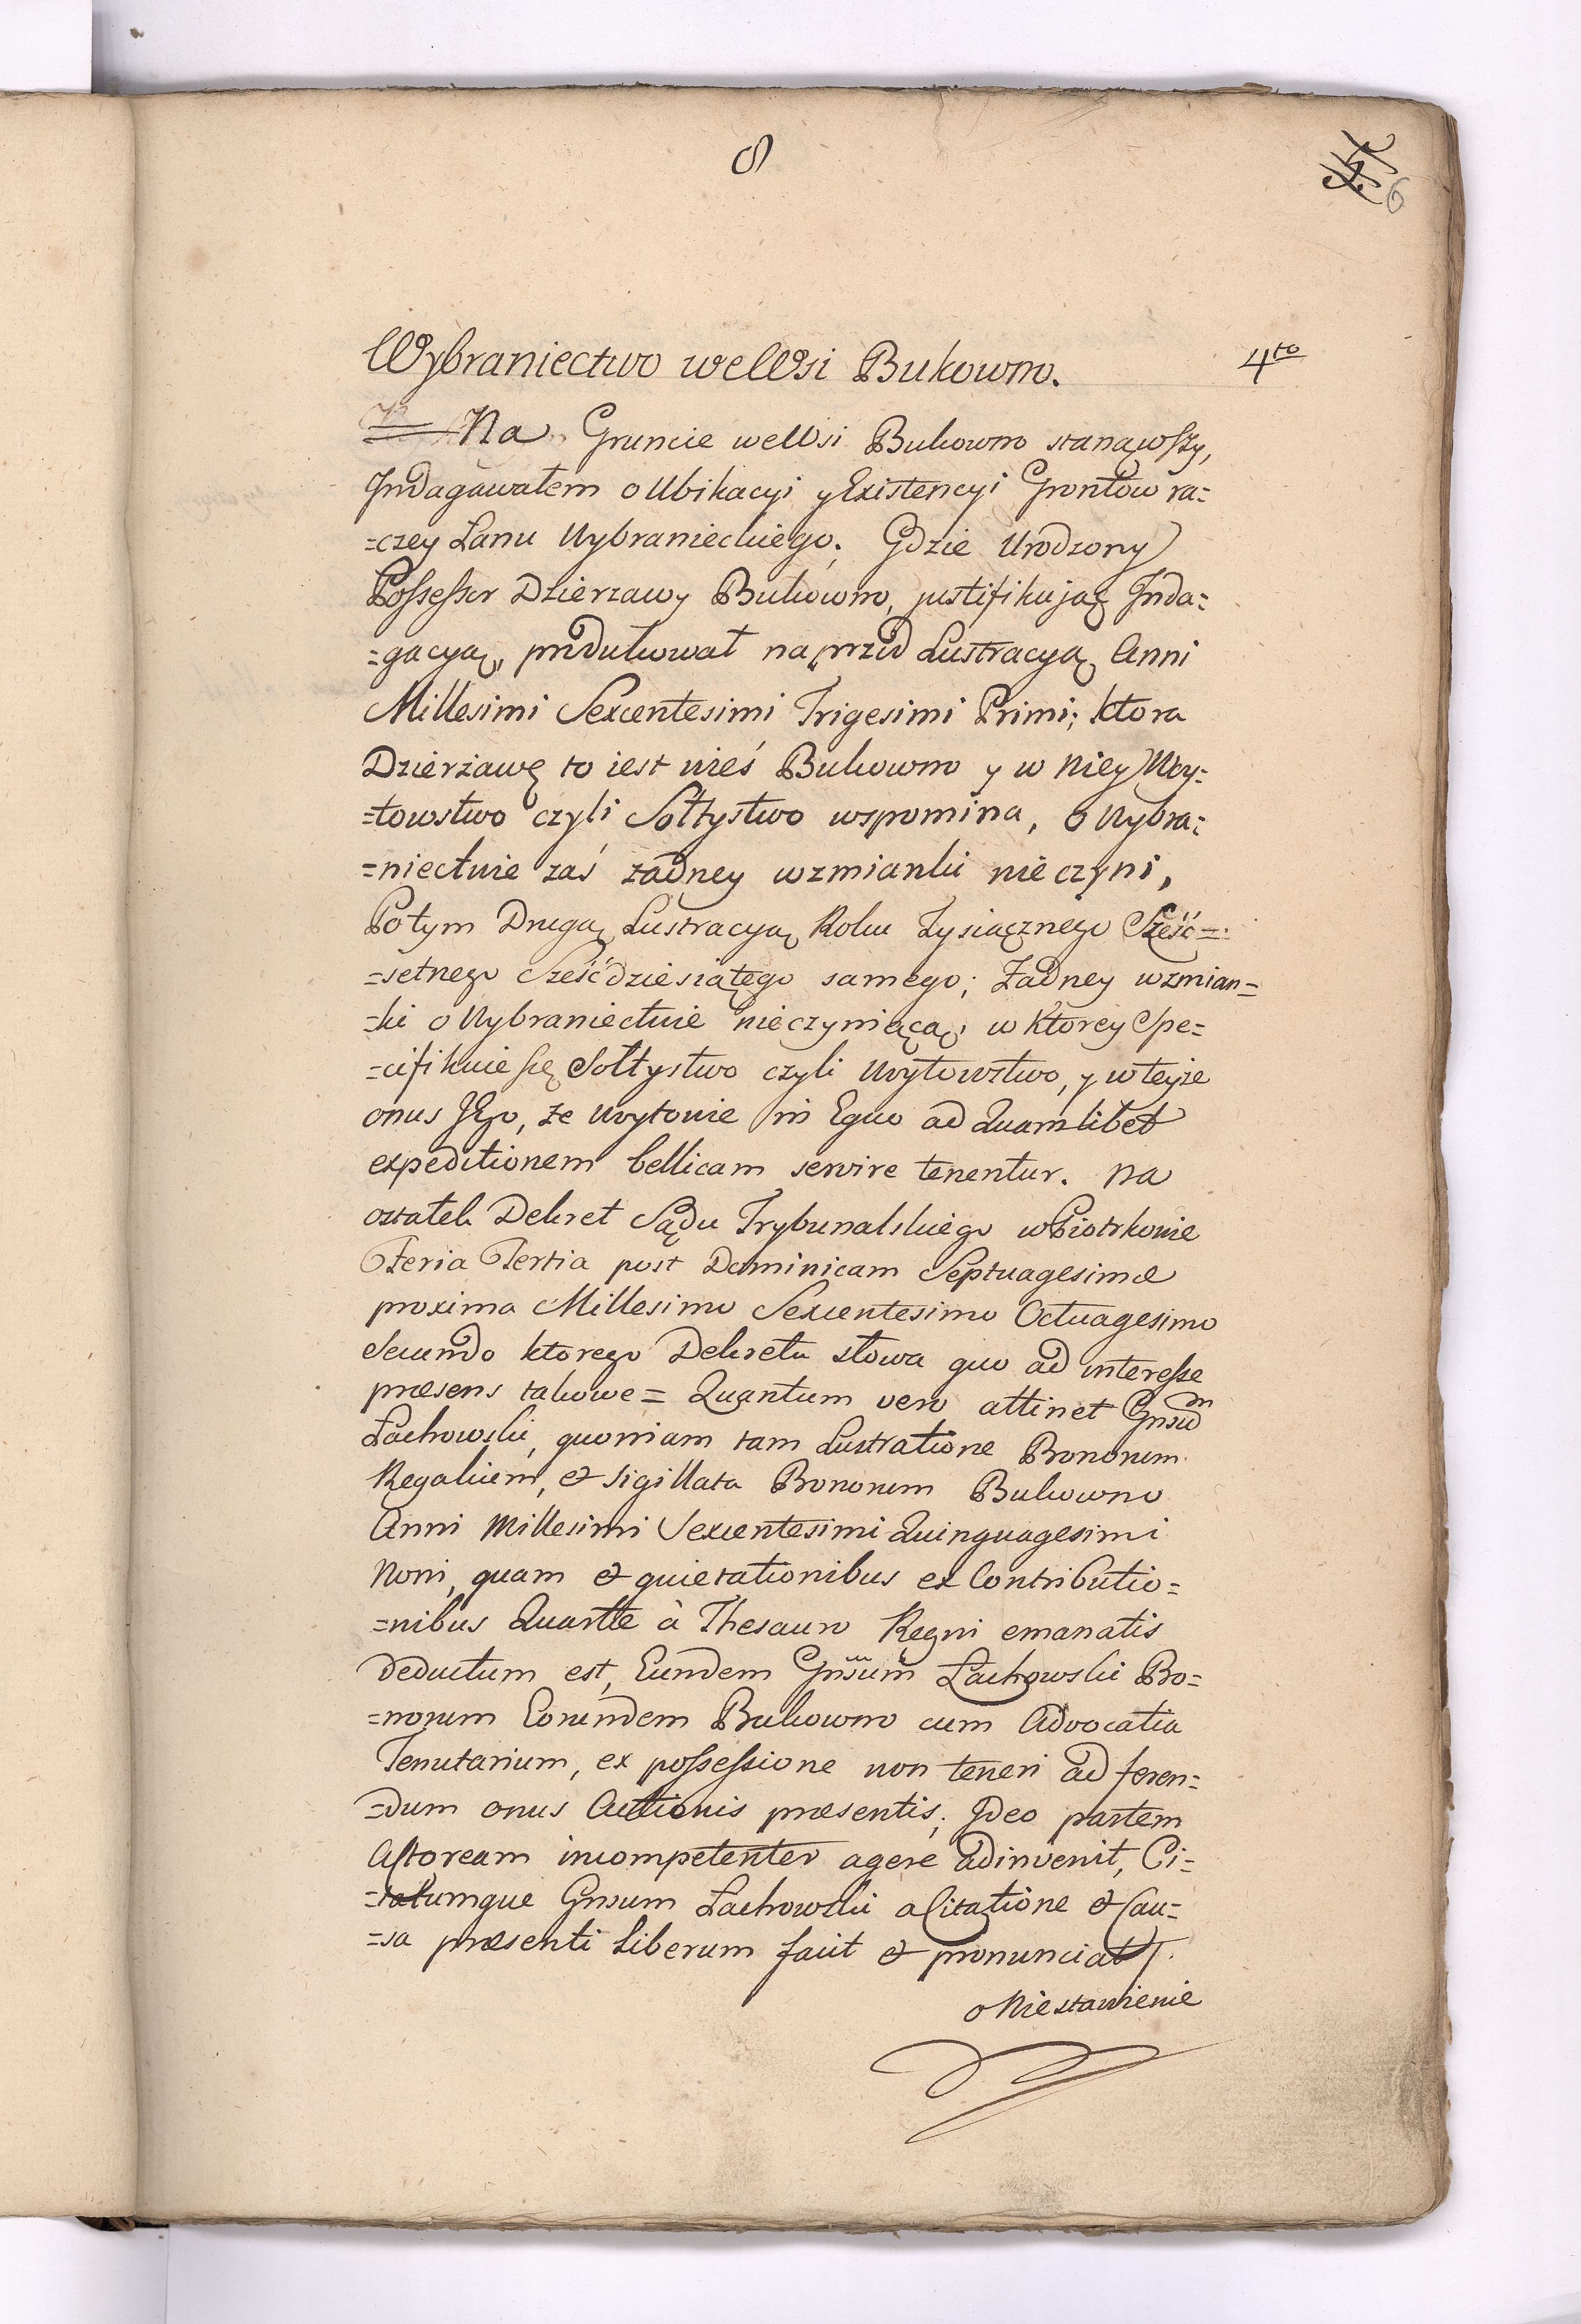 8
6
Wybraniectwo weWsi Bukowno. 4to
Na Gruncie weWsi Bukowno stanąwszy,
Indagawałem o Ubikacyi y Existencyi Grontow ra=
=czey Łanu Wybranieckiego. Gdzie Urodzony
Possessor Dzierzawy Bukowno, justifikując Inda=
=gacyą, produkował naprzod Lustracyą Anni
Millesimi Sexcentesimi Trigesimi Primi; ktora
Dzierżawę to iest wieś Bukowno y w niey Woy=
=towstwo czyli Sołtystwo wspomina, o Wybra=
=niectwie zaś żadney wzmianki nie czyni,
Potym Drugą Lustracyą Roku Tysiącznego Sześć=
=setnego Sześćdziesiątego samego; Żadney wzmian=
=ki o Wybraniectwie nieczyniącą, w ktorey Spe=
=cifikuie się Sołtystwo czyli Woytowstwo, y w teyże
onus Jego, że Woytowie in Equo ad Quamlibet
expeditionem bellicam servire tenentur. Na
ostatek Dekret Sądu Trybunalskiego wPiotrkowie
Feria Tertia post Dominicam Septuagesimæ
proxima Millesimo Sexcentesimo Octuagesimo
Secundo ktorego Dekretu słowa quo ad interesse
præsens takowe= Quantum vero attinet Gnsum
Lachowski, quoniam tam Lustratione Bonorum
Regalium, et sigillata Bonorum Bukowno
Anni Millesimi Sexcentesimi Quinquagesimi
Noni, quam et quietationibus ex Contributio=
=nibus Quartæ à Thesauro Regni emanatis
deductum est, Eundem Gnsum Lachowski Bo=
=norum Eorundem Bukowno cum Advocatia
Tenutarium, ex possessione non teneri ad feren=
=dum onus Actionis præsentis; Ideo partem
Actoream incompetenter agere adinvenit, Ci=
=tatumque Gnsum Lachowski a Citatione et Cau=
=sa præsenti liberum facit et pronunciat.
o Niestawienie